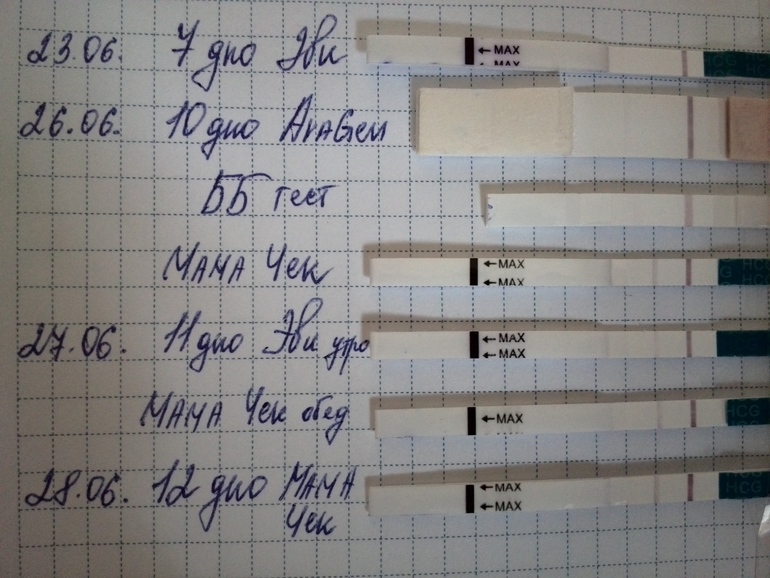 23.06. 7 дпо Эви
← MAX
← MAX
HCG HCG
26.06. 10 дпо AnaGen
ББ тест
Мама Чек
← MAX
← MAX
HCG
HCG
27.06. 11 дпо Эви утро
← MAX
← MAX
Мама Чек обед
← MAX
HCG
28.06. 12 дпо Мама
Чек
← MAX
← MAX
HCG